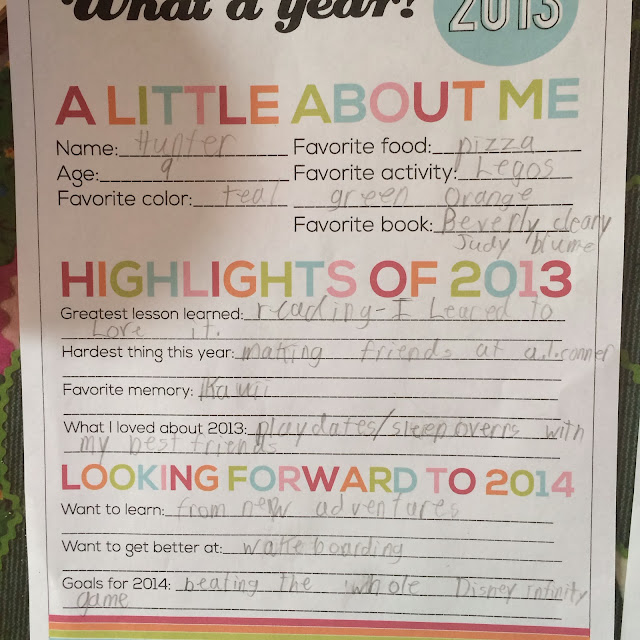 What a year! 2013
A LITTLE ABOUT ME
Name: Hunter Favorite food: pizza
Age: 9 Favorite activity: Legos
Favorite color: teal green orange
Favorite book: Beverly cleary
Judy blume
HIGHLIGHTS OF 2013
Greatest lesson learned: reading-I Leared to
Love it.
Hardest thing this year: making friends at a.T.conner
Favorite memory: Kauii
What I loved about 2013: playdates/sleepoverrs with
my best friends
LOOKING FORWARD TO 2014
Want to learn: from new adventures
Want to get better at: wakeboarding
Goals for 2014: beating the whole Disney Infinity
game